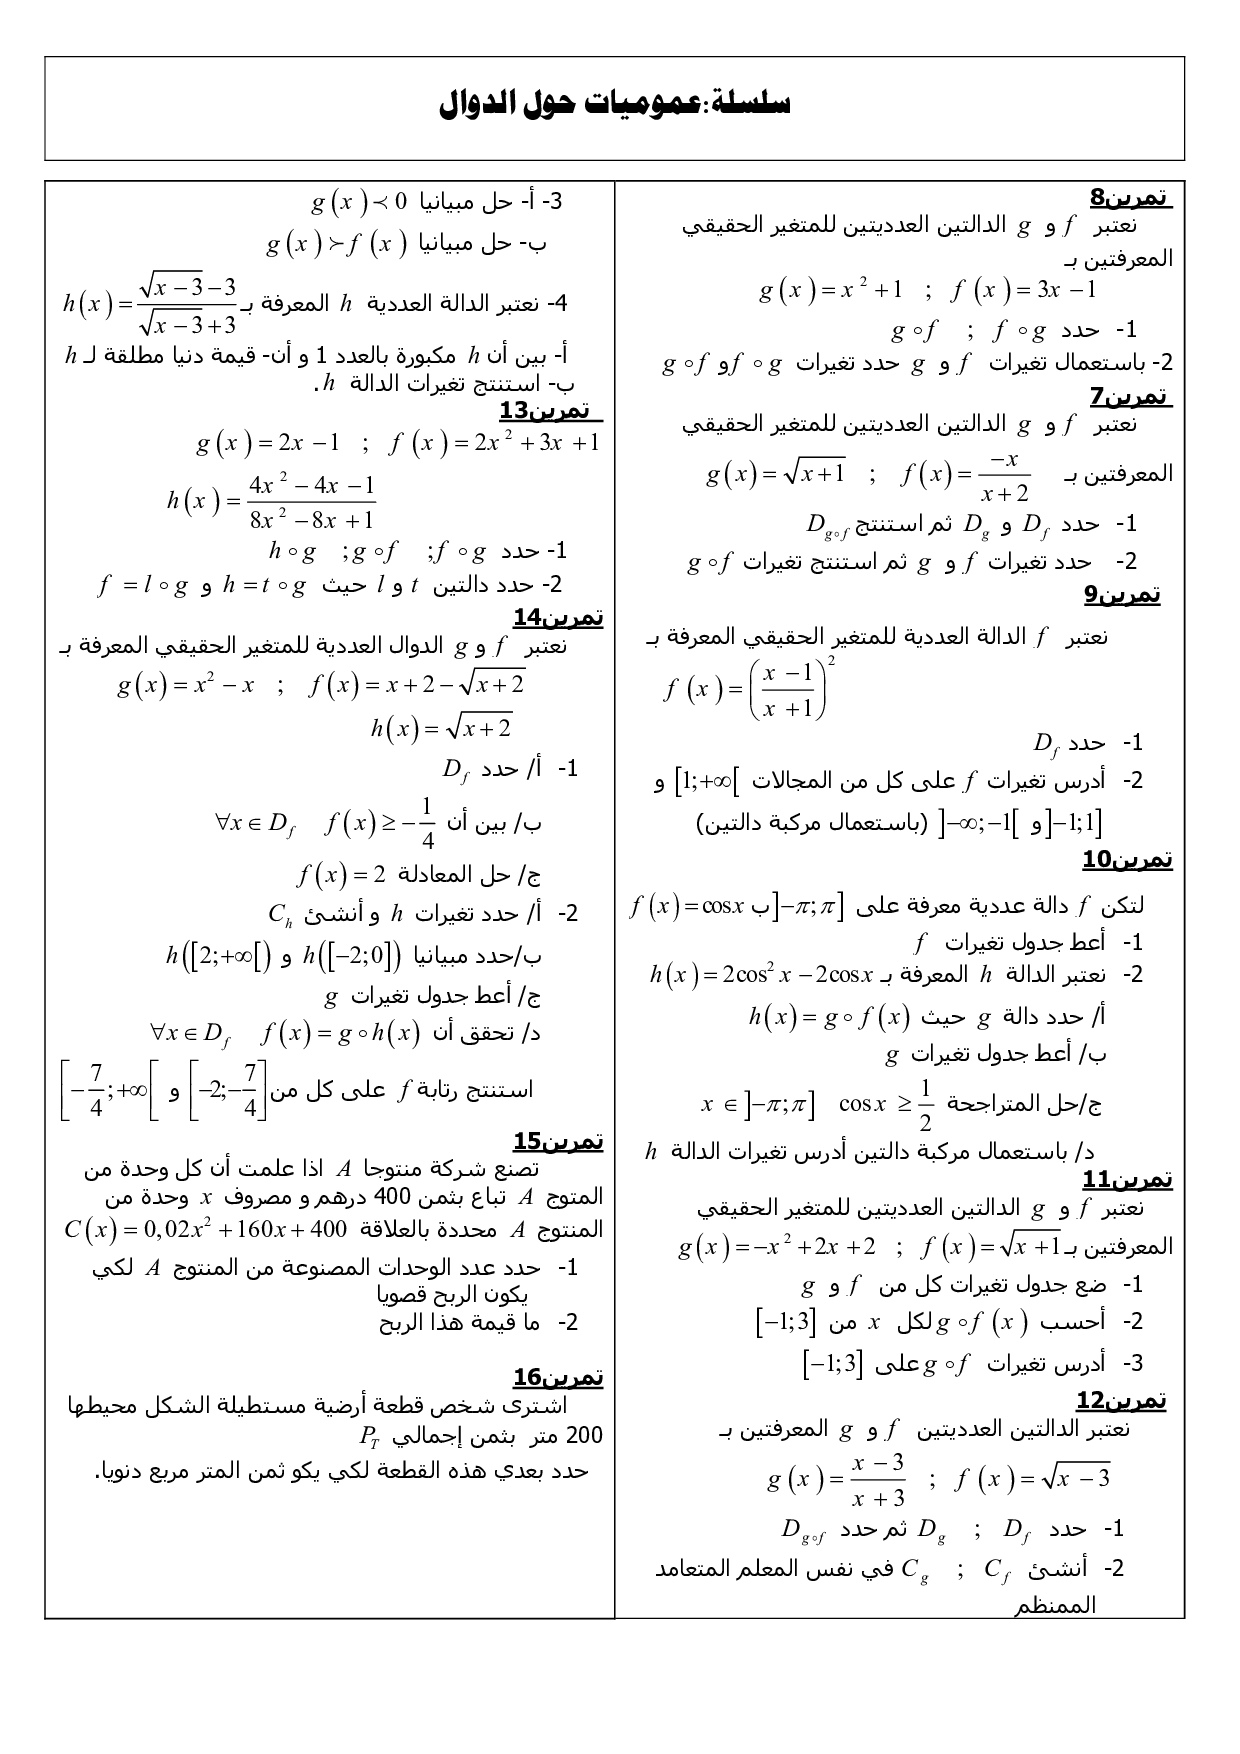 سلسلة:عموميات حول الدوال
تمرين8
نعتبر f و g الدالتين العدديتين للمتغير الحقيقي
المعرفتين بـ
g(x) = x² + 1 ; f(x) = 3x − 1
1- حدد f ∘ g ; g ∘ f
2- باستعمال تغيرات f و g حدد تغيرات f ∘ g و g ∘ f
تمرين7
نعتبر f و g الدالتين العدديتين للمتغير الحقيقي
المعرفتين بـ f(x) = −x/(x+2) ; g(x) = √(x+1)
1- حدد D_f و D_g ثم استنتج D_{g∘f}
2- حدد تغيرات f و g ثم استنتج تغيرات g ∘ f
تمرين9
نعتبر f الدالة العددية للمتغير الحقيقي المعرفة بـ
f(x) = ((x−1)/(x+1))²
1- حدد D_f
2- أدرس تغيرات f على كل من المجالات [1;+∞[ و
]−1;1] و ]−∞;−1[ (باستعمال مركبة دالتين)
تمرين10
لتكن f دالة عددية معرفة على ]−π;π] ب f(x) = cos x
1- أعط جدول تغيرات f
2- نعتبر الدالة h المعرفة بـ h(x) = 2cos² x − 2cos x
أ/ حدد دالة g حيث h(x) = g ∘ f(x)
ب/ أعط جدول تغيرات g
ج/حل المتراجحة x ∈ ]−π;π] cos x ≥ 1/2
د/ باستعمال مركبة دالتين أدرس تغيرات الدالة h
تمرين11
نعتبر f و g الدالتين العدديتين للمتغير الحقيقي
المعرفتين بـ g(x) = −x² + 2x + 2 ; f(x) = √(x+1)
1- ضع جدول تغيرات كل من f و g
2- أحسب g ∘ f(x) لكل x من [−1;3]
3- أدرس تغيرات g ∘ f على [−1;3]
تمرين12
نعتبر الدالتين العدديتين f و g المعرفتين بـ
g(x) = (x−3)/(x+3) ; f(x) = √(x−3)
1- حدد D_f ; D_g ثم حدد D_{g∘f}
2- أنشئ C_f ; C_g في نفس المعلم المتعامد
الممنظم
3- أ- حل مبيانيا g(x) ≺ 0
ب- حل مبيانيا g(x) ≻ f(x)
4- نعتبر الدالة العددية h المعرفة بـ h(x) = (√(x−3) − 3)/(√(x−3) + 3)
أ- بين أن h مكبورة بالعدد 1 و أن- قيمة دنيا مطلقة لـ h
ب- استنتج تغيرات الدالة h .
تمرين13
g(x) = 2x − 1 ; f(x) = 2x² + 3x + 1
h(x) = (4x² − 4x − 1)/(8x² − 8x + 1)
1- حدد f ∘ g ; g ∘ f ; h ∘ g
2- حدد دالتين t و l حيث h = t ∘ g و f = l ∘ g
تمرين14
نعتبر f و g الدوال العددية للمتغير الحقيقي المعرفة بـ
g(x) = x² − x ; f(x) = x + 2 − √(x+2)
h(x) = √(x+2)
1- أ/ حدد D_f
ب/ بين أن ∀x ∈ D_f f(x) ≥ −1/4
ج/ حل المعادلة f(x) = 2
2- أ/ حدد تغيرات h و أنشئ C_h
ب/حدد مبيانيا h([−2;0]) و h([2;+∞[)
ج/ أعط جدول تغيرات g
د/ تحقق أن ∀x ∈ D_f f(x) = g ∘ h(x)
استنتج رتابة f على كل من [−2;−7/4] و [−7/4;+∞[
تمرين15
تصنع شركة منتوجا A اذا علمت أن كل وحدة من
المتوج A تباع بثمن 400 درهم و مصروف x وحدة من
المنتوج A محددة بالعلاقة C(x) = 0,02x² + 160x + 400
1- حدد عدد الوحدات المصنوعة من المنتوج A لكي
يكون الربح قصويا
2- ما قيمة هذا الربح
تمرين16
اشترى شخص قطعة أرضية مستطيلة الشكل محيطها
200 متر بثمن إجمالي P_T
حدد بعدي هذه القطعة لكي يكو ثمن المتر مربع دنويا.